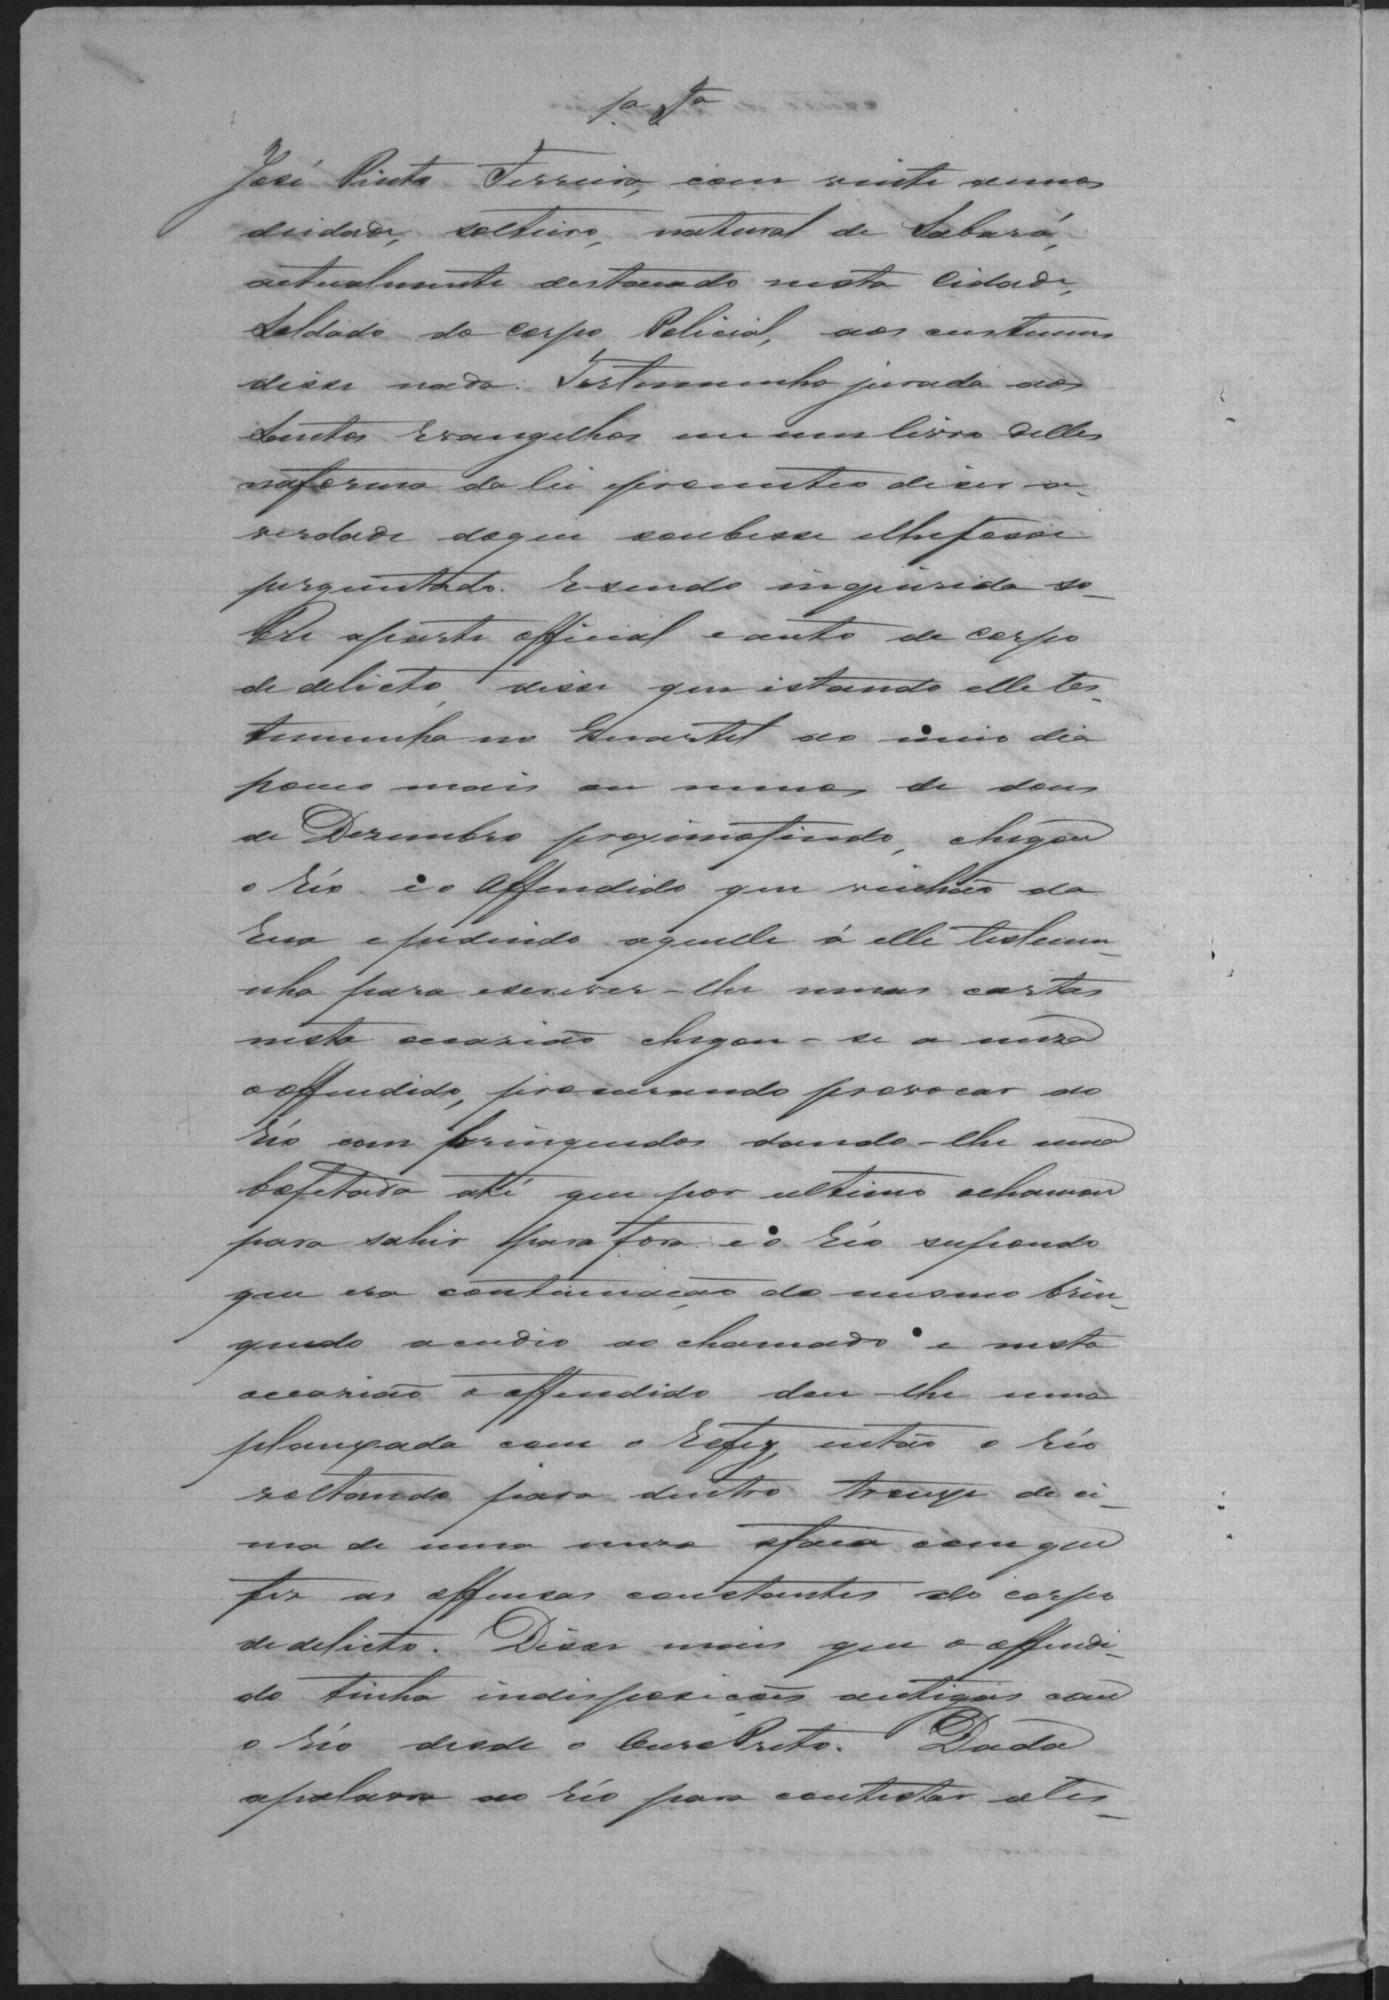 1ª Tª
José Pinto Ferreira, com vinte annos
deidade, solteiro, natural de Sabará,
actualmente destacado nesta Cidade,
Soldado do Corpo Policial, aos custumes
disse nada. Testemunha jurada aos
Santos Evangelhos em um livro delles
naforma da lei eprometteo diser a
verdade doque soubesse elhefosse
perguntado. Esendo inquirida so-
bre aparte official e auto de corpo
de delicto, disse que estando elle tes-
temunha no Quartel ao meio dia
pouco mais ou menos de dous
de Dezembro proximofindo, chegou
o Réo e o Offendido que vinhão da
Rua e pedindo aquelle á elle testemu-
nha para escrever-lhe umas cartas
nesta occasião chegou-se a meza
o offendido, procurando provocar ao
Réo com brinquedos dando-lhe uma
bofetada até que por ultimo ochamou
para sahir para fora e o Réo supondo
que era continuação do mesmo brin-
quedo acudio ao chamado e nesta
occasião o offendido deu-lhe uma
planxada com o Refe, então o Réo
voltando para dentro trouxe de ci-
ma de uma meza afaca com que
fez as offensas constantes do corpo
dedelicto. Disse mais que o offendi-
do tinha indisposicões antigas com
o Réo desde o Ouro Preto. Dada
apalavra ao Réo para contestar ates-